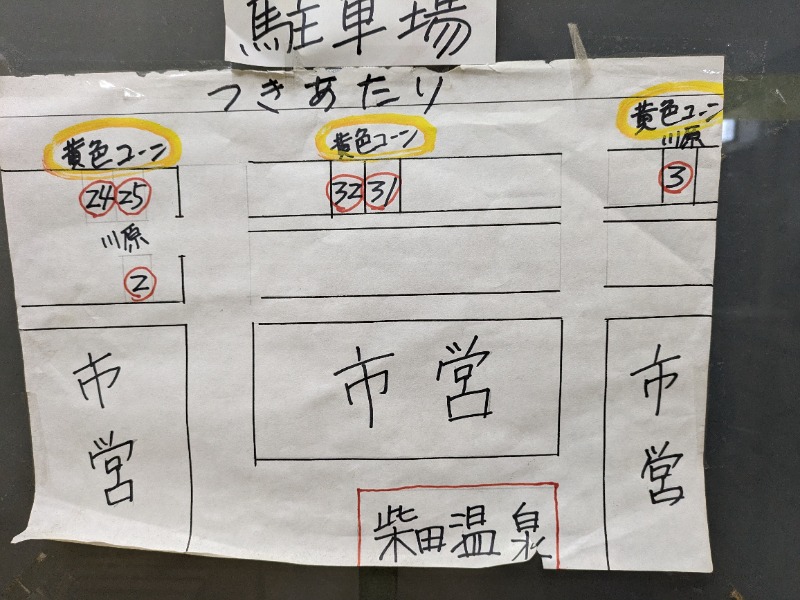 駐車場
つきあたり
黄色コーン
黄色コーン
黄色コーン
川原
24 25
32 31
3
川原
2
市営
市営
市営
柴田温泉